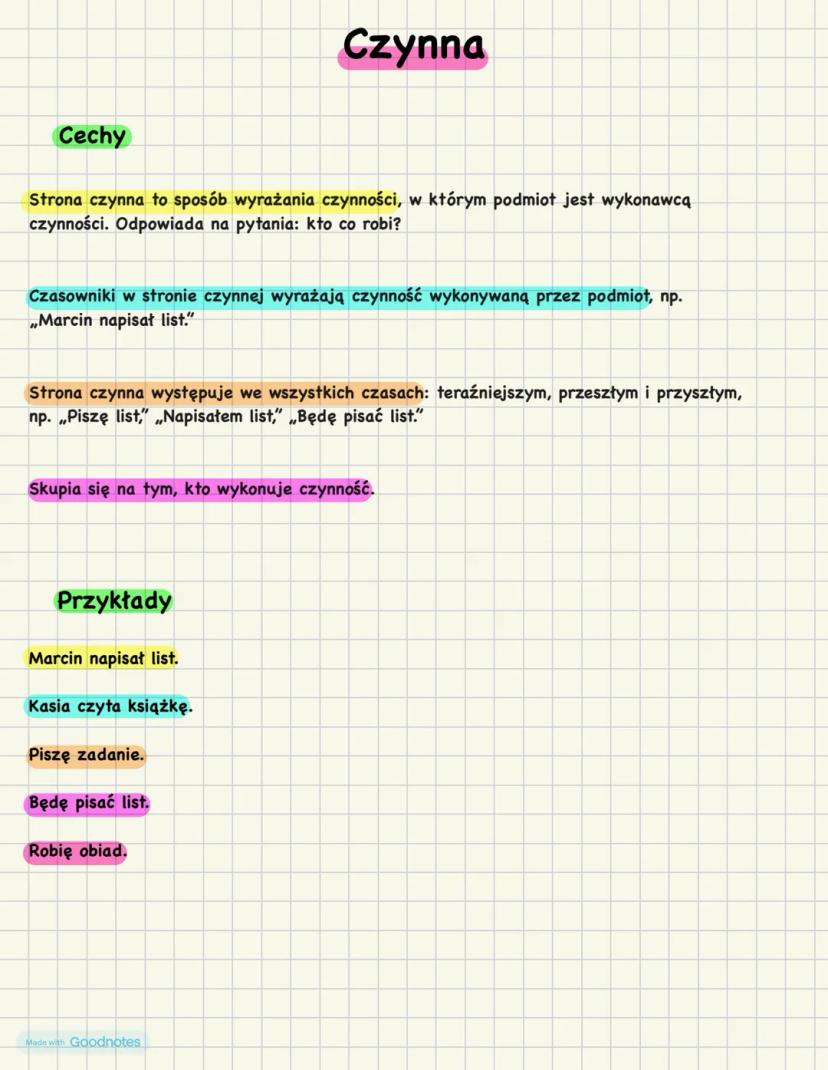 Czynna
Cechy
Strona czynna to sposób wyrażania czynności, w którym podmiot jest wykonawcą
czynności. Odpowiada na pytania: kto co robi?
Czasowniki w stronie czynnej wyrażają czynność wykonywaną przez podmiot, np.
„Marcin napisał list.”
Strona czynna występuje we wszystkich czasach: teraźniejszym, przeszłym i przyszłym,
np. „Piszę list,” „Napisałem list,” „Będę pisać list.”
Skupia się na tym, kto wykonuje czynność.
Przykłady
Marcin napisał list.
Kasia czyta książkę.
Piszę zadanie.
Będę pisać list.
Robię obiad.
Made with Goodnotes